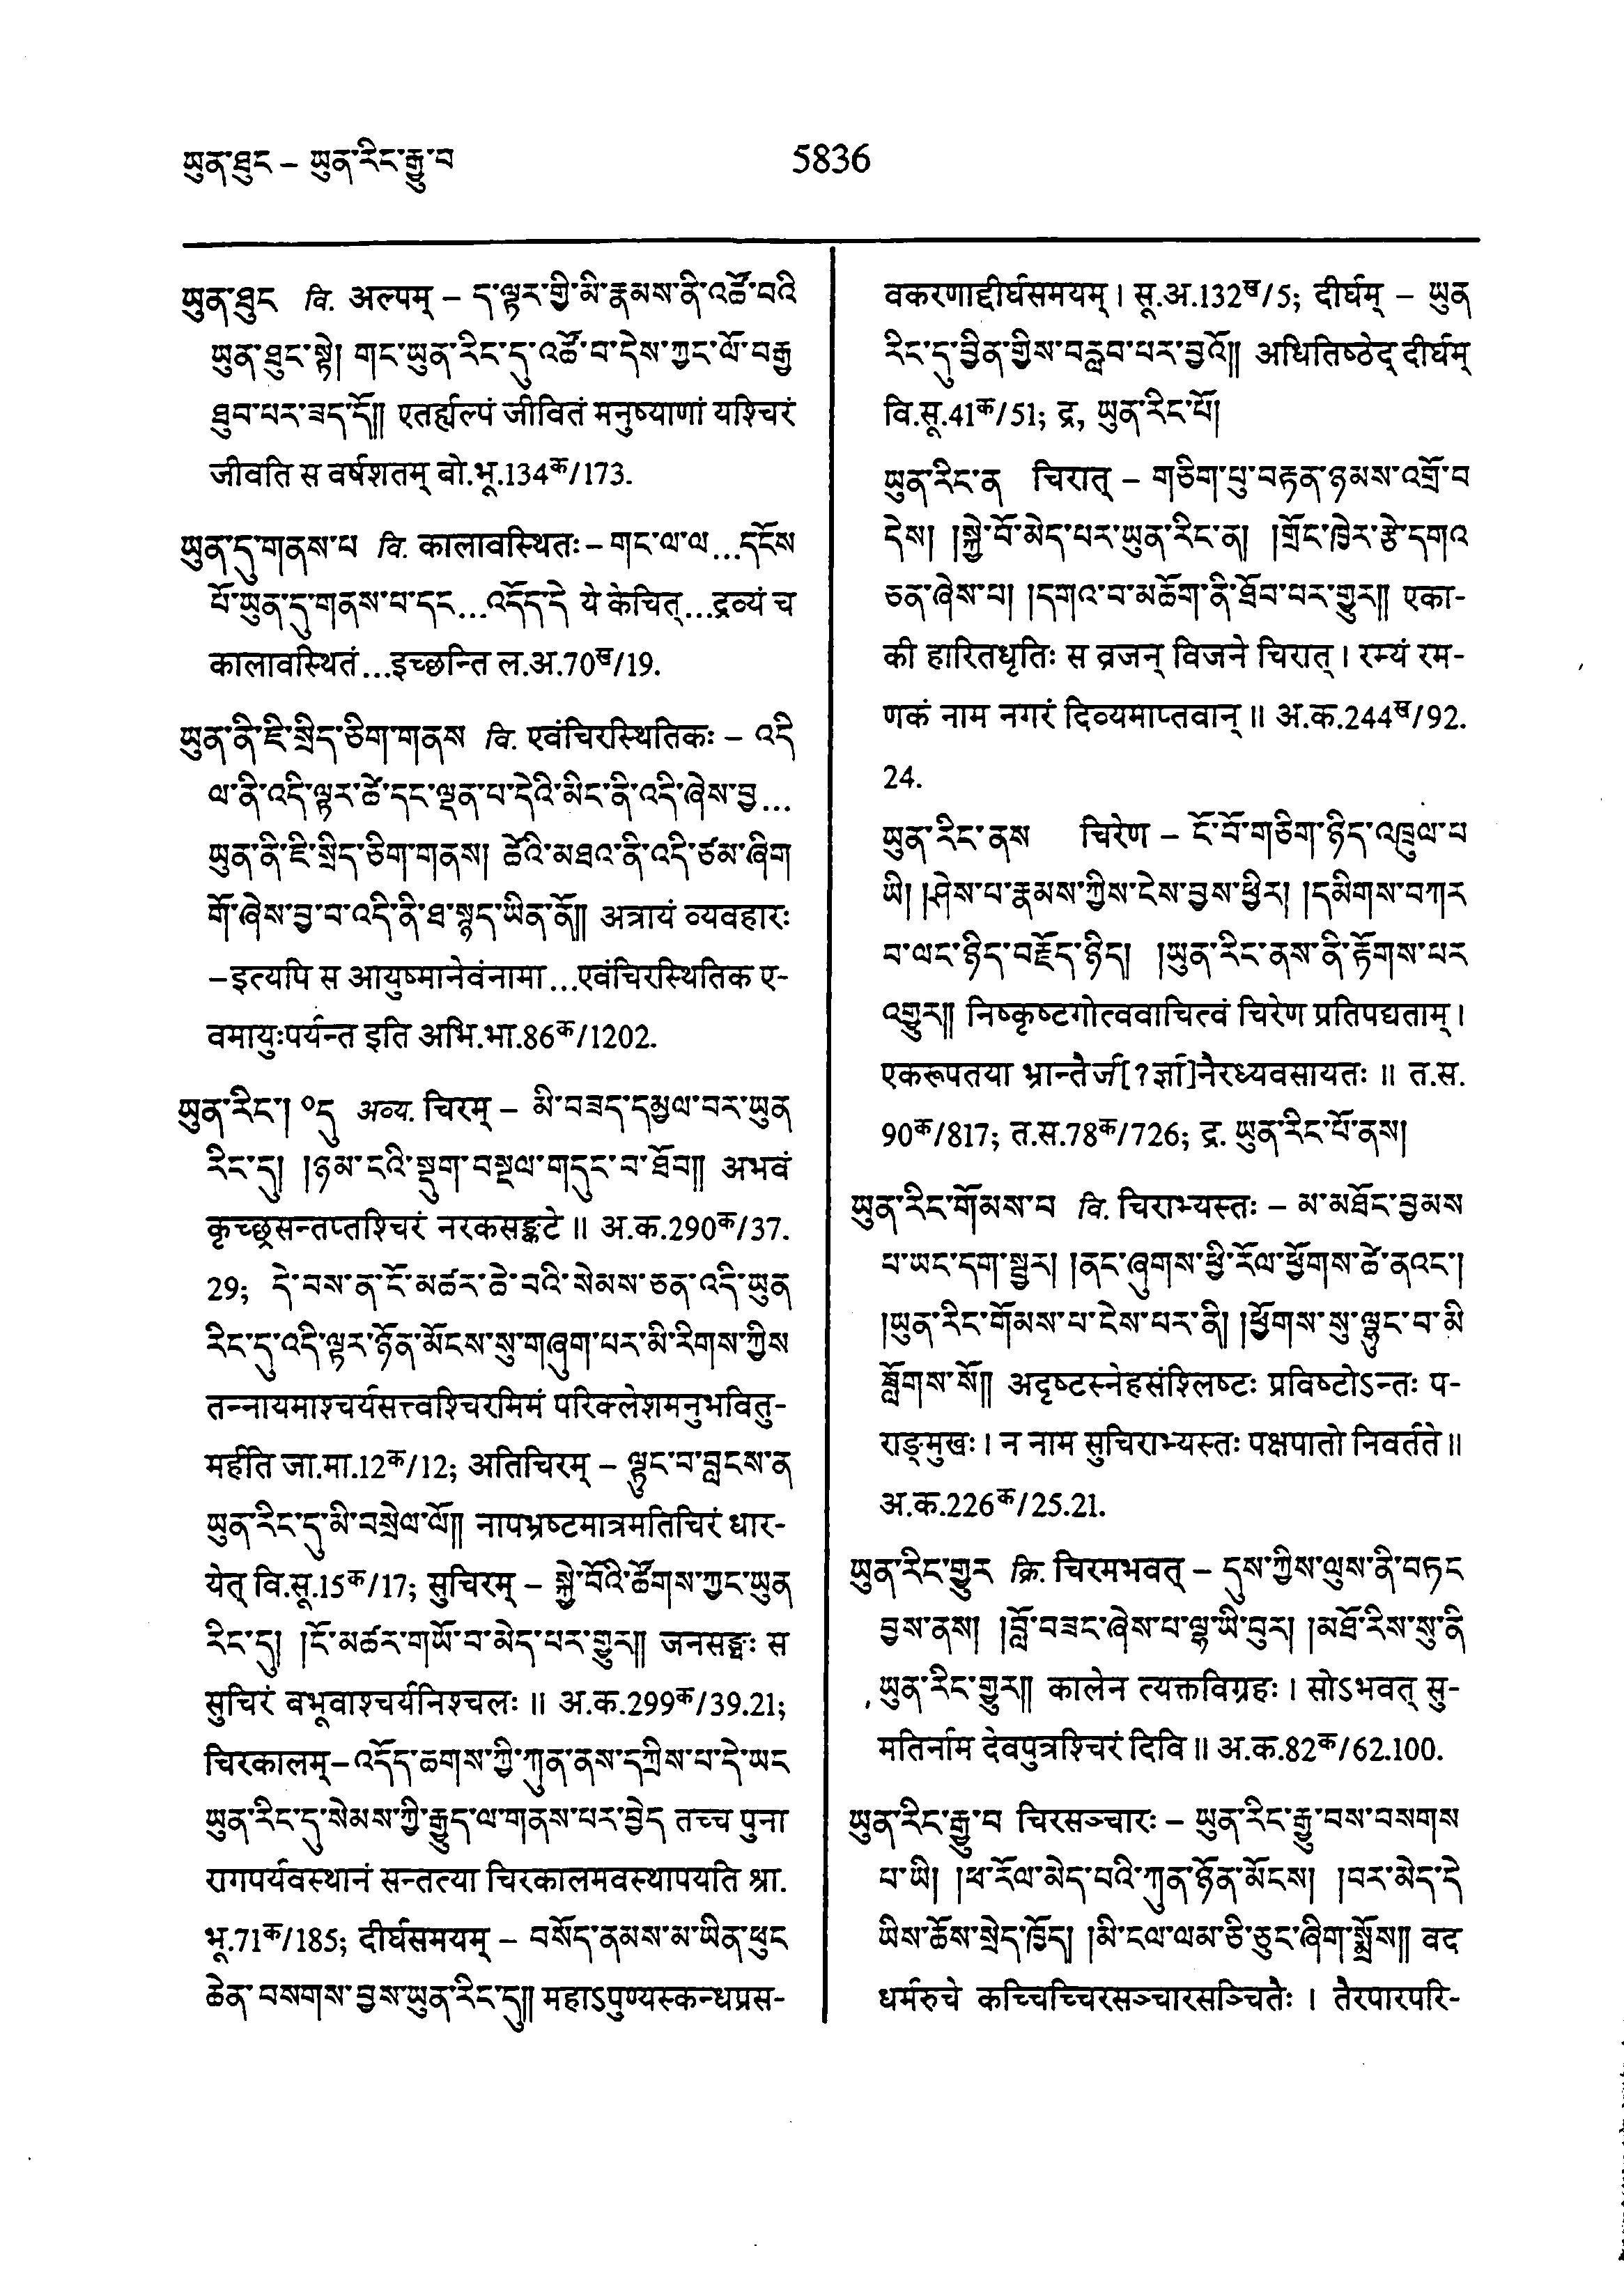 ཡུན་ཐུང – ཡུན་རིང་རྒྱུ་བ
5836
ཡུན་ཐུང वि. अल्पम् – ད་ལྟར་གྱི་མི་རྣམས་ནི་འཚོ་བའི
ཡུན་ཐུང་སྟེ། གང་ཡུན་རིང་དུ་འཚོ་བ་དེས་ཀྱང་ལོ་བརྒྱ
ཐུབ་པར་ཟད་དོ།། एतर्ह्यल्पं जीवितं मनुष्याणां यश्चिरं
जीवति स वर्षशतम् बो.भू.134क/173.
ཡུན་དུ་གནས་པ वि. कालावस्थितः – གང་ལ་ལ...དངོས
པོ་ཡུན་དུ་གནས་པ་དང...འདོད་དེ ये केचित्...द्रव्यं च
कालावस्थितं...इच्छन्ति ल.अ.70ख/19.
ཡུན་ནི་ཇི་སྲིད་ཅིག་གནས वि. एवंचिरस्थितिकः – འདི
ལ་ནི་འདི་ལྟར་ཚེ་དང་ལྡན་པ་དེའི་མིང་ནི་འདི་ཞེས་བྱ...
ཡུན་ནི་ཇི་སྲིད་ཅིག་གནས། ཚེའི་མཐའ་ནི་འདི་ཙམ་ཞིག
གོ་ཞེས་བྱ་བ་འདི་ནི་ཐ་སྙད་ཡིན་ནོ།། अत्रायं व्यवहारः
–इत्यपि स आयुष्मानेवंनामा...एवंचिरस्थितिक ए-
वमायुःपर्यन्त इति अभि.भा.86क/1202.
ཡུན་རིང་། °དུ अव्य. चिरम् – མི་བཟད་དམྱལ་བར་ཡུན
རིང་དུ། །ཉམ་ངའི་སྡུག་བསྔལ་གདུང་བ་ཐོབ།། अभवं
कृच्छ्रसन्तप्तश्चिरं नरकसङ्कटे ॥ अ.क.290क/37.
29; དེ་བས་ན་ངོ་མཚར་ཆེ་བའི་སེམས་ཅན་འདི་ཡུན
རིང་དུ་འདི་ལྟར་ཉོན་མོངས་སུ་གཞུག་པར་མི་རིགས་ཀྱིས
तन्नायमाश्चर्यसत्त्वश्चिरमिमं परिक्लेशमनुभवितु-
मर्हति जा.मा.12क/12; अतिचिरम् – ལྷུང་བ་བླངས་ན
ཡུན་རིང་དུ་མི་བསྲེལ་ལོ།། नापभ्रष्टमात्रमतिचिरं धार-
येत् वि.सू.15क/17; सुचिरम् – སྐྱེ་བོའི་ཚོགས་ཀྱང་ཡུན
རིང་དུ། །ངོ་མཚར་གཡོ་བ་མེད་པར་གྱུར།། जनसङ्घः स
सुचिरं बभूवाश्चर्यनिश्चलः ॥ अ.क.299क/39.21;
चिरकालम्–འདོད་ཆགས་ཀྱི་ཀུན་ནས་དཀྲིས་པ་དེ་ཡང
ཡུན་རིང་དུ་སེམས་ཀྱི་རྒྱུད་ལ་གནས་པར་བྱེད तच्च पुना
रागपर्यवस्थानं सन्तत्या चिरकालमवस्थापयति श्रा.
भू.71क/185; दीर्घसमयम् – བསོད་ནམས་མ་ཡིན་ཕུང
ཆེན་བསགས་བྱས་ཡུན་རིང་དུ།། महाऽपुण्यस्कन्धप्रस-
वकरणाद्दीर्घसमयम्। सू.अ.132ख/5; दीर्घम् – ཡུན
རིང་དུ་བྱིན་གྱིས་བརླབ་པར་བྱའོ།། अधितिष्ठेद् दीर्घम्
वि.सू.41क/51; द्र, ཡུན་རིང་པོ།
ཡུན་རིང་ན चिरात् – གཅིག་པུ་བརྟན་ཉམས་འགྲོ་བ
དེས། །སྐྱེ་བོ་མེད་པར་ཡུན་རིང་ན། །གྲོང་ཁྱེར་རྩེ་དགའ
ཅན་ཞེས་པ། །དགའ་བ་མཆོག་ནི་ཐོབ་པར་གྱུར།། एका-
की हारितधृतिः स व्रजन् विजने चिरात्। रम्यं रम-
णकं नाम नगरं दिव्यमाप्तवान् ॥ अ.क.244ख/92.
24.
ཡུན་རིང་ནས चिरेण – ངོ་བོ་གཅིག་ཉིད་འཁྲུལ་པ
ཡི། །ཤེས་པ་རྣམས་ཀྱིས་ངེས་བྱས་ཕྱིར། །དམིགས་བཀར
བ་ལང་ཉིད་བརྗོད་ཉིད། །ཡུན་རིང་ནས་ནི་རྟོགས་པར
འགྱུར།། निष्कृष्टगोत्ववाचित्वं चिरेण प्रतिपद्यताम्।
एकरूपतया भ्रान्तैर्ज[?र्ज्ञा]नैरध्यवसायतः ॥ त.स.
90क/817; त.स.78क/726; द्र. ཡུན་རིང་པོ་ནས།
ཡུན་རིང་གོམས་པ वि. चिराभ्यस्तः – མ་མཐོང་བྱམས
པ་ཡང་དག་སྦྱར། །ནང་ཞུགས་ཕྱི་རོལ་ཕྱོགས་ཚེ་ནའང་།
།ཡུན་རིང་གོམས་པ་ངེས་པར་ནི། །ཕྱོགས་སུ་ལྷུང་བ་མི
ལྡོགས་སོ།། अदृष्टस्नेहसंश्लिष्टः प्रविष्टोऽन्तः प-
राङ्मुखः। न नाम सुचिराभ्यस्तः पक्षपातो निवर्तते॥
अ.क.226क/25.21.
ཡུན་རིང་གྱུར क्रि. चिरमभवत् – དུས་ཀྱིས་ལུས་ནི་བཏང
བྱས་ནས། །བློ་བཟང་ཞེས་པ་ལྷ་ཡི་བུར། །མཐོ་རིས་སུ་ནི
ཡུན་རིང་གྱུར།། कालेन त्यक्तविग्रहः। सोऽभवत् सु-
मतिर्नाम देवपुत्रश्चिरं दिवि॥ अ.क.82क/62.100.
ཡུན་རིང་རྒྱུ་བ चिरसञ्चारः – ཡུན་རིང་རྒྱུ་བས་བསགས
པ་ཡི། །ཕ་རོལ་མེད་པའི་ཀུན་ཉོན་མོངས། །བར་མེད་དེ
ཡིས་ཆོས་སྲེད་ཁྱོད། །མི་ངལ་ལམ་ཅི་ཅུང་ཞིག་སྨྲོས།། वद
धर्मरुचे कच्चिच्चिरसञ्चारसञ्चितैः। तैरपारपरि-